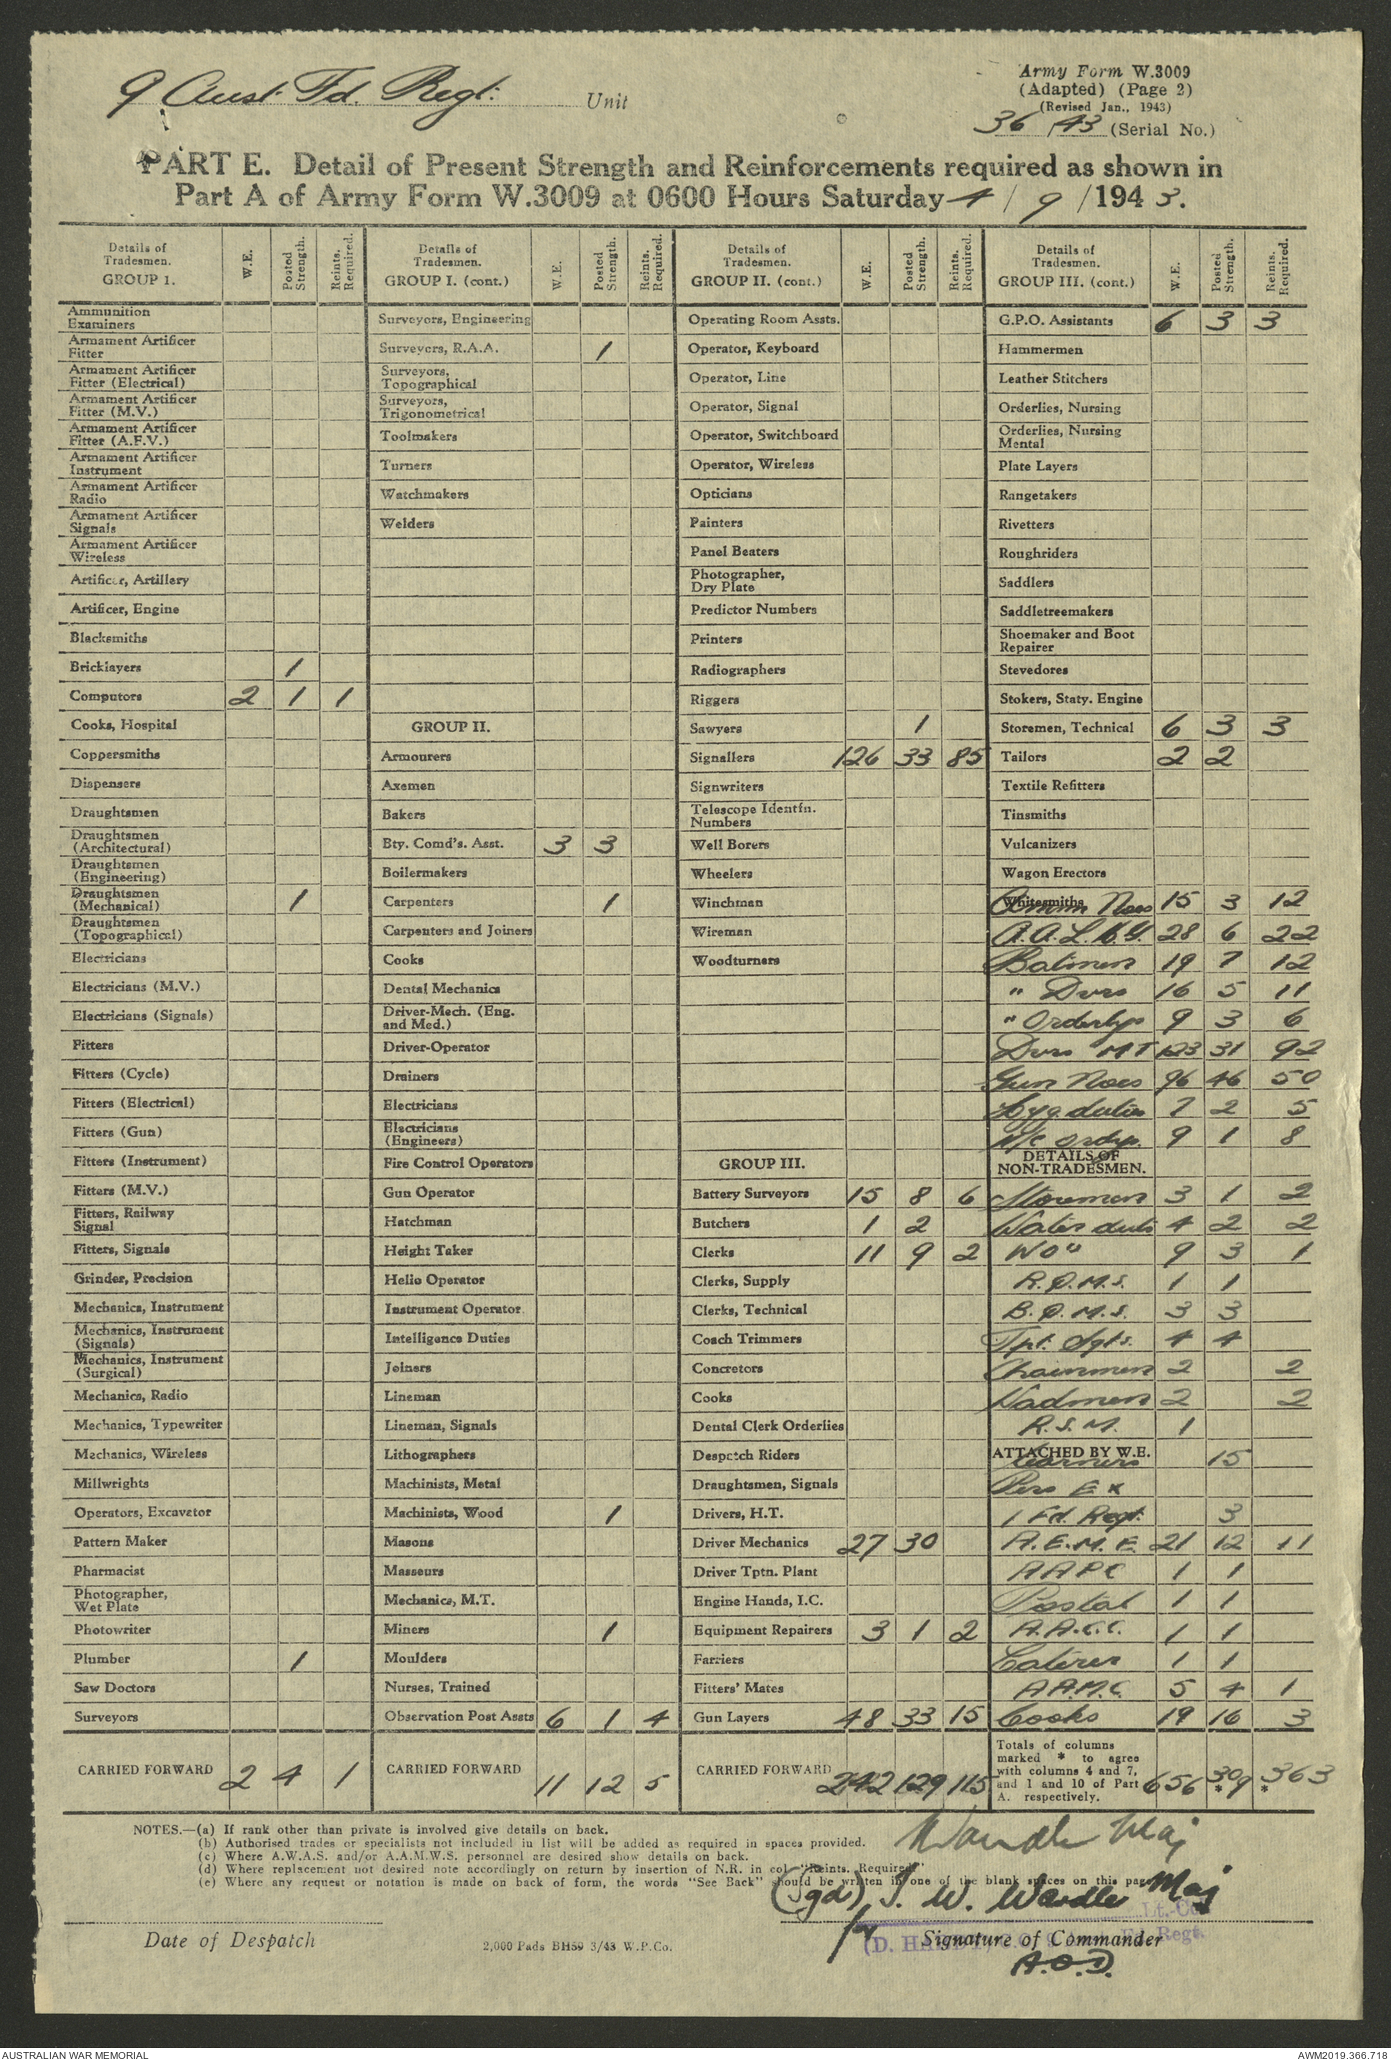 9 Aust. Fd. Regt. Unit
Army Form W.3009
(Adapted) (Page 2)
(Revised Jan., 1943)
36 /43 (Serial No.)
PART E. Detail of Present Strength and Reinforcements required as shown in
Part A of Army Form W.3009 at 0600 Hours Saturday 4 / 9 /1943.
Details of Tradesmen. GROUP 1. W.E. Posted Strength. Reints. Required.
Ammunition Examiners
Armament Artificer Fitter
Armament Artificer Fitter (Electrical)
Armament Artificer Fitter (M.V.)
Armament Artificer Fitter (A.F.V.)
Armament Artificer Instrument
Armament Artificer Radio
Armament Artificer Signals
Armament Artificer Wireless
Artificer, Artillery
Artificer, Engine
Blacksmiths
Bricklayers 1
Computors 2 1 1
Cooks, Hospital
Coppersmiths
Dispensers
Draughtsmen
Draughtsmen (Architectural)
Draughtsmen (Engineering)
Draughtsmen (Mechanical) 1
Draughtsmen (Topographical)
Electricians
Electricians (M.V.)
Electricians (Signals)
Fitters
Fitters (Cycle)
Fitters (Electrical)
Fitters (Gun)
Fitters (Instrument)
Fitters (M.V.)
Fitters, Railway Signal
Fitters, Signals
Grinder, Precision
Mechanics, Instrument
Mechanics, Instrument (Signals)
Mechanics, Instrument (Surgical)
Mechanics, Radio
Mechanics, Typewriter
Mechanics, Wireless
Millwrights
Operators, Excavator
Pattern Maker
Pharmacist
Photographer, Wet Plate
Photowriter
Plumber 1
Saw Doctors
Surveyors
CARRIED FORWARD 2 4 1
Details of Tradesmen. GROUP I. (cont.) W.E. Posted Strength. Reints. Required.
Surveyors, Engineering
Surveyors, R.A.A. 1
Surveyors, Topographical
Surveyors, Trigonometrical
Toolmakers
Turners
Watchmakers
Welders
GROUP II.
Armourers
Axemen
Bakers
Bty. Comd's. Asst. 3 3
Boilermakers
Carpenters 1
Carpenters and Joiners
Cooks
Dental Mechanics
Driver-Mech. (Eng. and Med.)
Driver-Operator
Drainers
Electricians
Electricians (Engineers)
Fire Control Operators
Gun Operator
Hatchman
Height Taker
Helio Operator
Instrument Operator
Intelligence Duties
Joiners
Lineman
Lineman, Signals
Lithographers
Machinists, Metal
Machinists, Wood 1
Masons
Masseurs
Mechanics, M.T.
Miners 1
Moulders
Nurses, Trained
Observation Post Assts 6 1 4
CARRIED FORWARD 11 12 5
Details of Tradesmen. GROUP II. (cont.) W.E. Posted Strength. Reints. Required.
Operating Room Assts.
Operator, Keyboard
Operator, Line
Operator, Signal
Operator, Switchboard
Operator, Wireless
Opticians
Painters
Panel Beaters
Photographer, Dry Plate
Predictor Numbers
Printers
Radiographers
Riggers
Sawyers 1
Signallers 126 33 85
Signwriters
Telescope Identfn. Numbers
Well Borers
Wheelers
Winchman
Wireman
Woodturners
GROUP III.
Battery Surveyors 15 8 6
Butchers 1 2
Clerks 11 9 2
Clerks, Supply
Clerks, Technical
Coach Trimmers
Concretors
Cooks
Dental Clerk Orderlies
Despatch Riders
Draughtsmen, Signals
Drivers, H.T.
Driver Mechanics 27 30
Driver Tptn. Plant
Engine Hands, I.C.
Equipment Repairers 3 1 2
Farriers
Fitters' Mates
Gun Layers 48 33 15
CARRIED FORWARD 242 129 115
Details of Tradesmen. GROUP III. (cont.) W.E. Posted Strength. Reints. Required.
G.P.O. Assistants 6 3 3
Hammermen
Leather Stitchers
Orderlies, Nursing
Orderlies, Nursing Mental
Plate Layers
Rangetakers
Rivetters
Roughriders
Saddlers
Saddletreemakers
Shoemaker and Boot Repairer
Stevedores
Stokers, Staty. Engine
Storemen, Technical 6 3 3
Tailors 2 2
Textile Refitters
Tinsmiths
Vulcanizers
Wagon Erectors
Whitesmiths Ammn Nos 15 3 12
A.A.L.M.G. 28 6 22
Batmen 19 7 12
" Dvrs 16 5 11
" Orderlys 9 3 6
Dvrs MT 123 31 92
Gun Nos 96 46 50
Hyg. duties 7 2 5
M/c Ordys. 9 1 8
DETAILS OF NON-TRADESMEN.
Storemen 3 1 2
Water duts 4 2 2
WO" 9 3 1
R.Q.M.S. 1 1
B.Q.M.S. 3 3
Tpt. Sgts. 4 4
Chainmen 2 2
Vadmen 2 2
R.S.M. 1
ATTACHED BY W.E.
Learners 15
Pers Ex
1 Fd. Regt. 3
A.E.M.E. 21 12 11
AAPC 1 1
Postal 1 1
A.A.C.C. 1 1
Caterer 1 1
A.A.M.C. 5 4 1
Cooks 19 16 3
Totals of columns marked * to agree with columns 4 and 7, and 1 and 10 of Part A. respectively. 656 309 * 363 *
NOTES.—(a) If rank other than private is involved give details on back.
(b) Authorised trades or specialists not included in list will be added as required in spaces provided.
(c) Where A.W.A.S. and/or A.A.M.W.S. personnel are desired show details on back.
(d) Where replacement not desired note accordingly on return by insertion of N.R. in col. "Reints. Required."
(e) Where any request or notation is made on back of form, the words "See Back" should be written in one of the blank spaces on this page.
Wardle Maj
(Sgd) J. W. Wardle Maj
Lt.-Col.
Date of Despatch
2,000 Pads BH59 3/43 W.P.Co.
Signature of Commander
A.O.D.
AUSTRALIAN WAR MEMORIAL
AWM2019.366.718